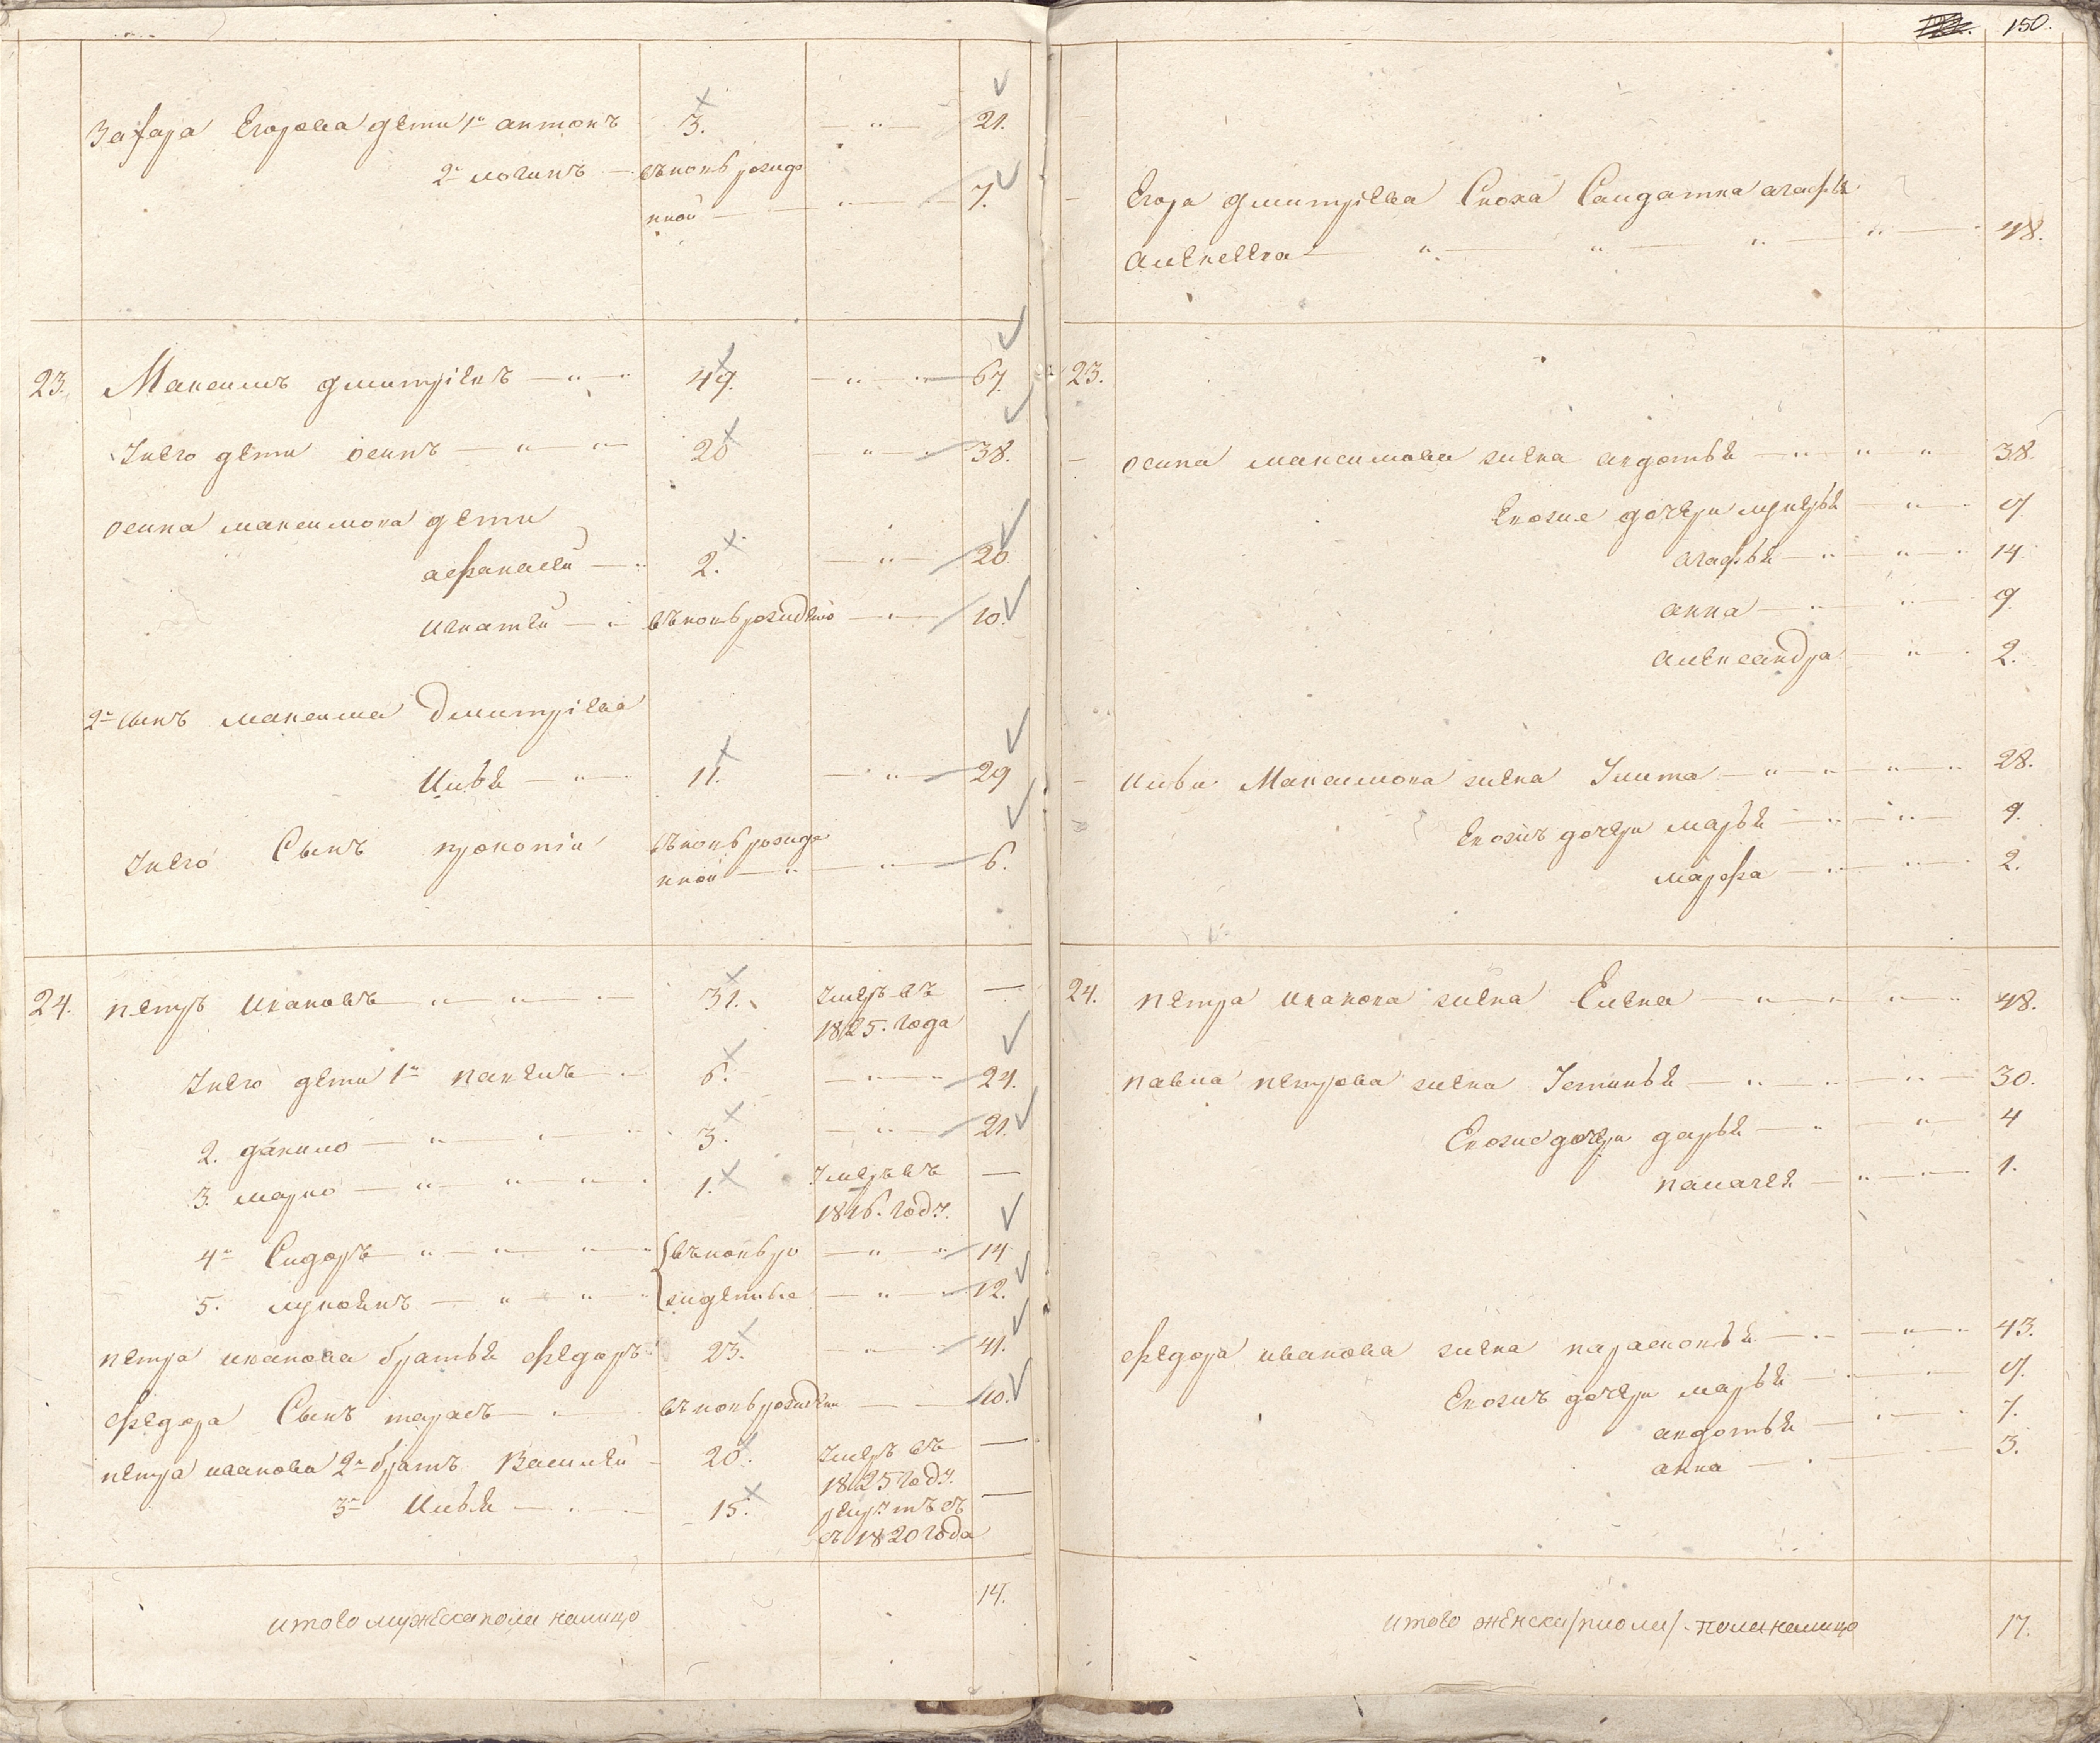 150.
Захара Егорова дети 1й антонъ 3. — " — 21.
2й логинъ — въновь рожде
нной — " — 7.
23. Максимъ дмитріевъ — " — 49. — " — 67.
Унего дети осипъ — " — " 20 — " — 38.
осипа максимова дети
афанасей — " 2. — " — 20.
игнатей — " въновь рожденъ — " — 10.
2й сынъ максима Дмитріева
Илья — " — 11. — " — 29
Унего Сынъ прокопіи въновь рожде
нной — " — " — 6.
24. петръ ивановъ — " — " — " 31. Умеръ въ —
1825. года
Унего дети 1й павелъ — " 6. — " — " 24.
2. данило — " — " — " 3. — " — 21.
3. марко — " — " — " 1. Умеръ въ —
1816. году.
4й Сидоръ — " — " — " въновь ро — " — " 14
5. лукоянъ — " — " — " жденные — " — 12.
петра иванова братья федоръ 23. — " — 41.
федора Сынъ тарасъ — " въновь рожденъ — 10.
петра иванова 2й братъ Василей — 20. Умеръ въ —
1825 году.
3й Илья — " — 15. рекрутъ съ —
съ 1820 года
итого мужеска пола налицо 14.
Егора дмитріева Сноха Салдатка агафья
алексеева — " — " — " — " — 48.
23.
осипа максимова жена авдотья — " — " — " 38.
Енеже дочери лукерья — " — 17.
агафья — " — " — 14
анна — " — " — 9.
александра — " — 2.
ильи Максимова жена Улита — " — " — " — " 28.
Енежъ дочери марья — " — " — 9.
марфа — " — " — 2.
24. петра иванова жена Елена — " — " — " — " 48.
павла петрова жена Устинья — " — " — " — 30.
Енеже дочери дарья — " — " — 4
палагея — " — " — 1.
федора иванова жена парасковья — " — " — 43.
Енежъ дочери марья — " — 17.
авдотья — " — 7.
анна — " — 3.
итого женска пола налицо 17.